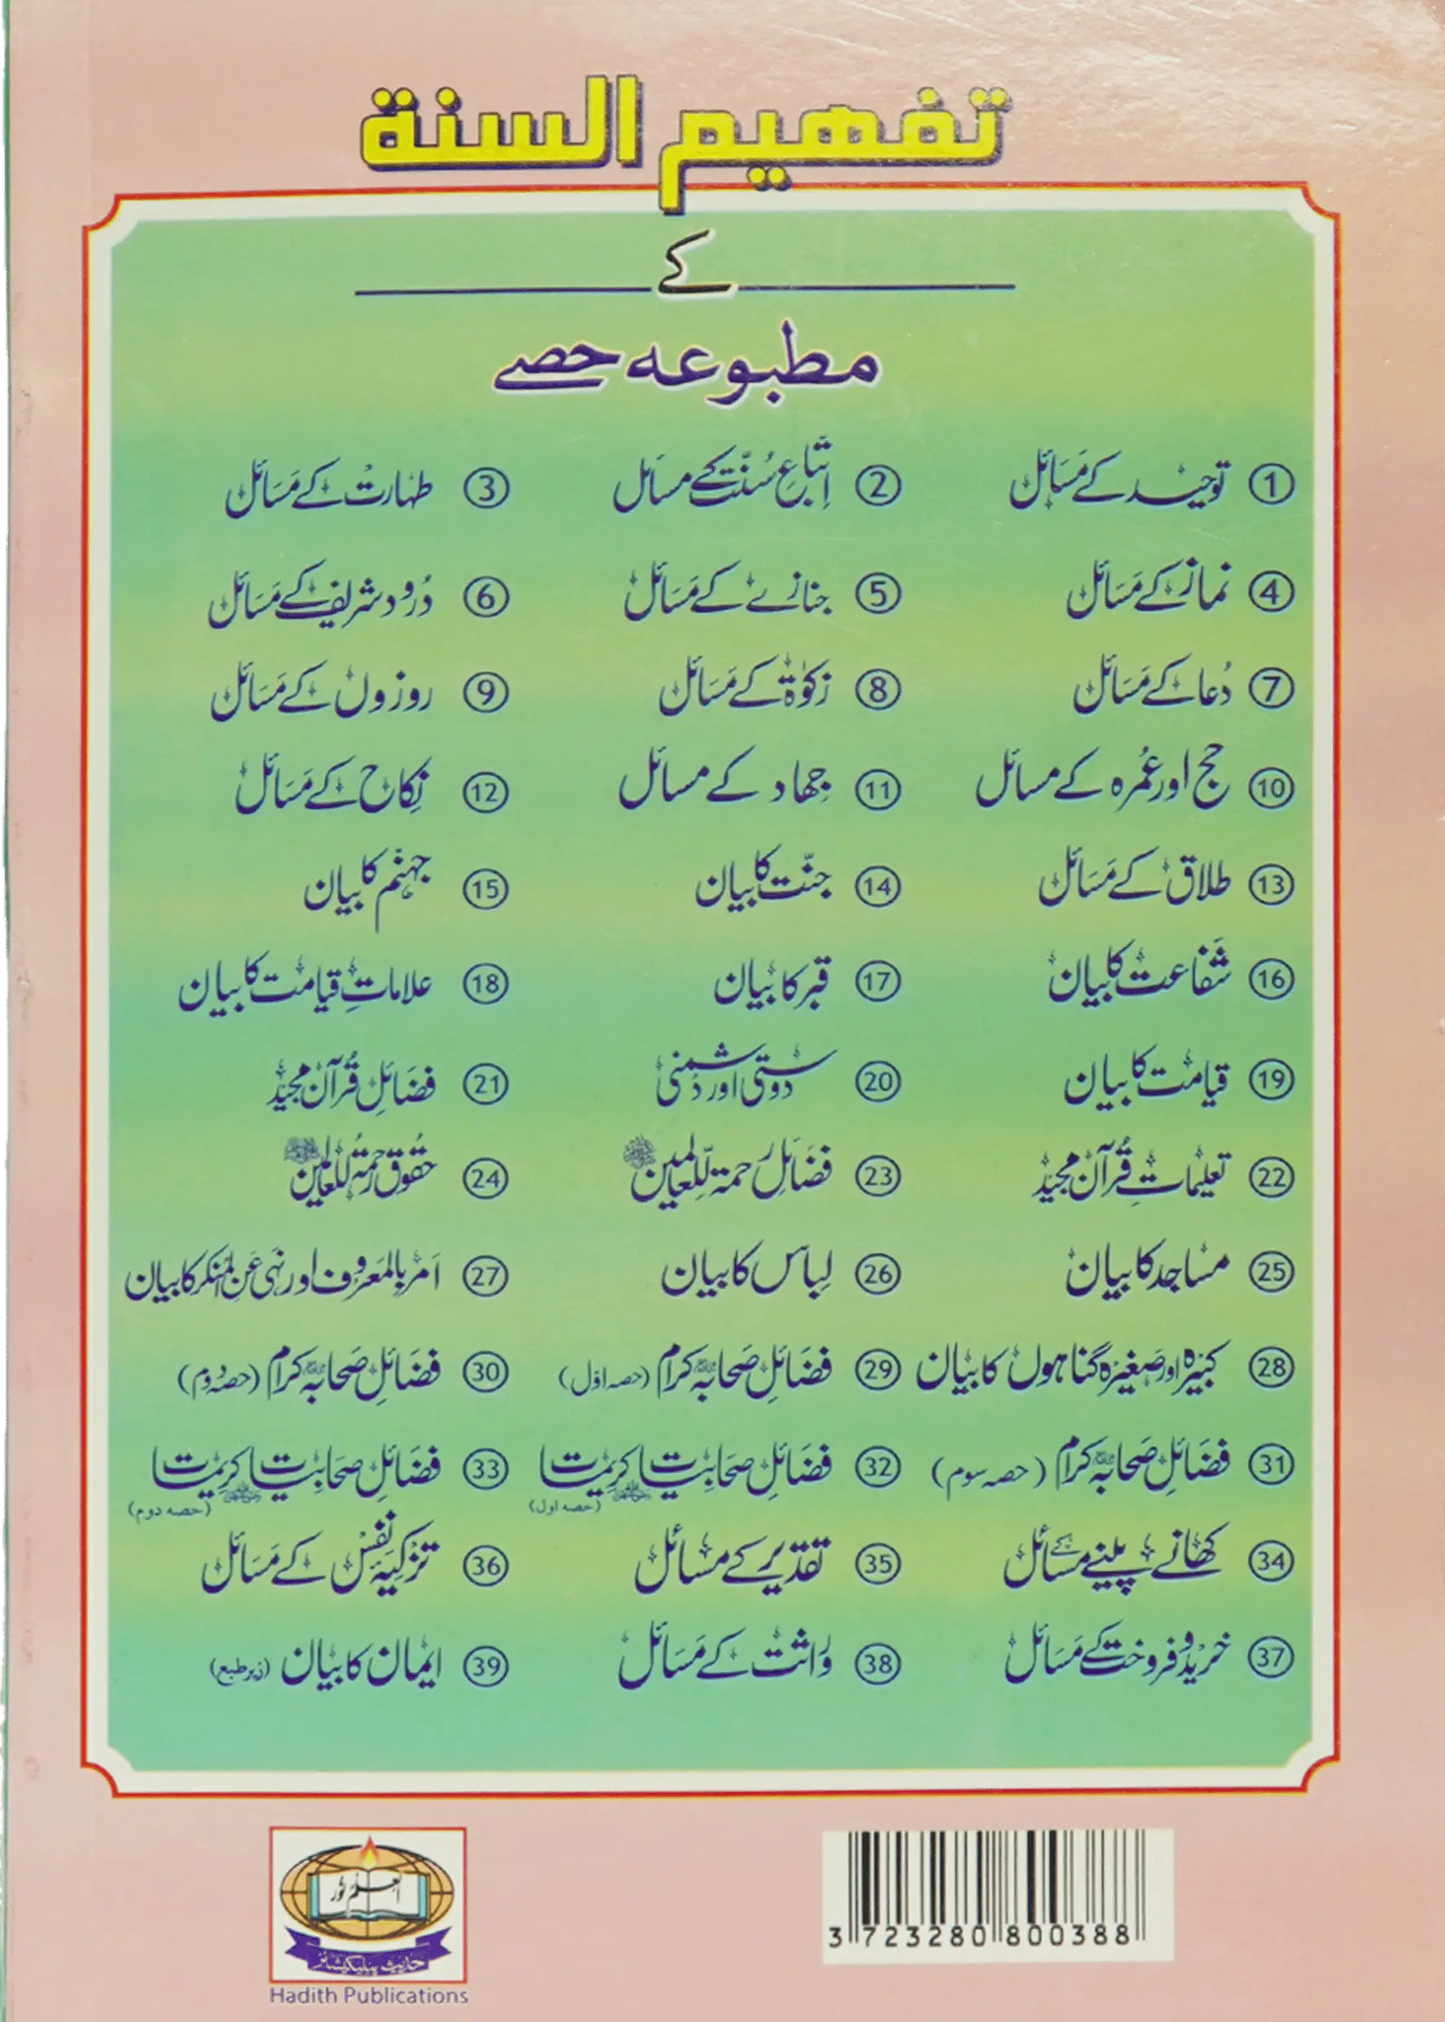 تفہیم السنۃ
کے
مطبوعہ حصے
① توحید کے مسائل ② اتباع سُنّت کے مسائل ③ طہارت کے مسائل
④ نماز کے مسائل ⑤ جنازے کے مسائل ⑥ دُرود شریف کے مسائل
⑦ دُعا کے مسائل ⑧ زکوٰۃ کے مسائل ⑨ روزوں کے مسائل
⑩ حج اور عُمرہ کے مسائل ⑪ جِهاد کے مسائل ⑫ نِکاح کے مسائل
⑬ طلاق کے مسائل ⑭ جنّت کا بیان ⑮ جہنّم کا بیان
⑯ شفاعت کا بیان ⑰ قبر کا بیان ⑱ علاماتِ قیامت کا بیان
⑲ قیامت کا بیان ⑳ دوستی اور دُشمنی ㉑ فضائلِ قُرآن مجید
㉒ تعلیماتِ قُرآن مجید ㉓ فضائل رحمۃ لِّلعالمین ﷺ ㉔ حقُوق رحمۃ للعالمین ﷺ
㉕ مساجد کا بیان ㉖ لِباس کا بیان ㉗ امر بالمعروف اور نہی عن المنکر کا بیان
㉘ کبیرہ اور صغیرہ گناہوں کا بیان ㉙ فضائلِ صحابہ کرام (حصہ اول) ㉚ فضائلِ صحابہ کرام (حصہ دوم)
㉛ فضائلِ صحابہ کرام (حصہ سوم) ㉜ فضائلِ صحابیات کریمات (حصہ اول) ㉝ فضائلِ صحابیات کریمات (حصہ دوم)
㉞ کھانے پینے کے مسائل ㉟ تقدیر کے مسائل ㊱ تزکیہ نفس کے مسائل
㊲ خرید و فروخت کے مسائل ㊳ وراثت کے مسائل ㊴ ایمان کا بیان (زیر طبع)
العلم نور
حدیث پبلیکیشنز
Hadith Publications
3 723280 800388